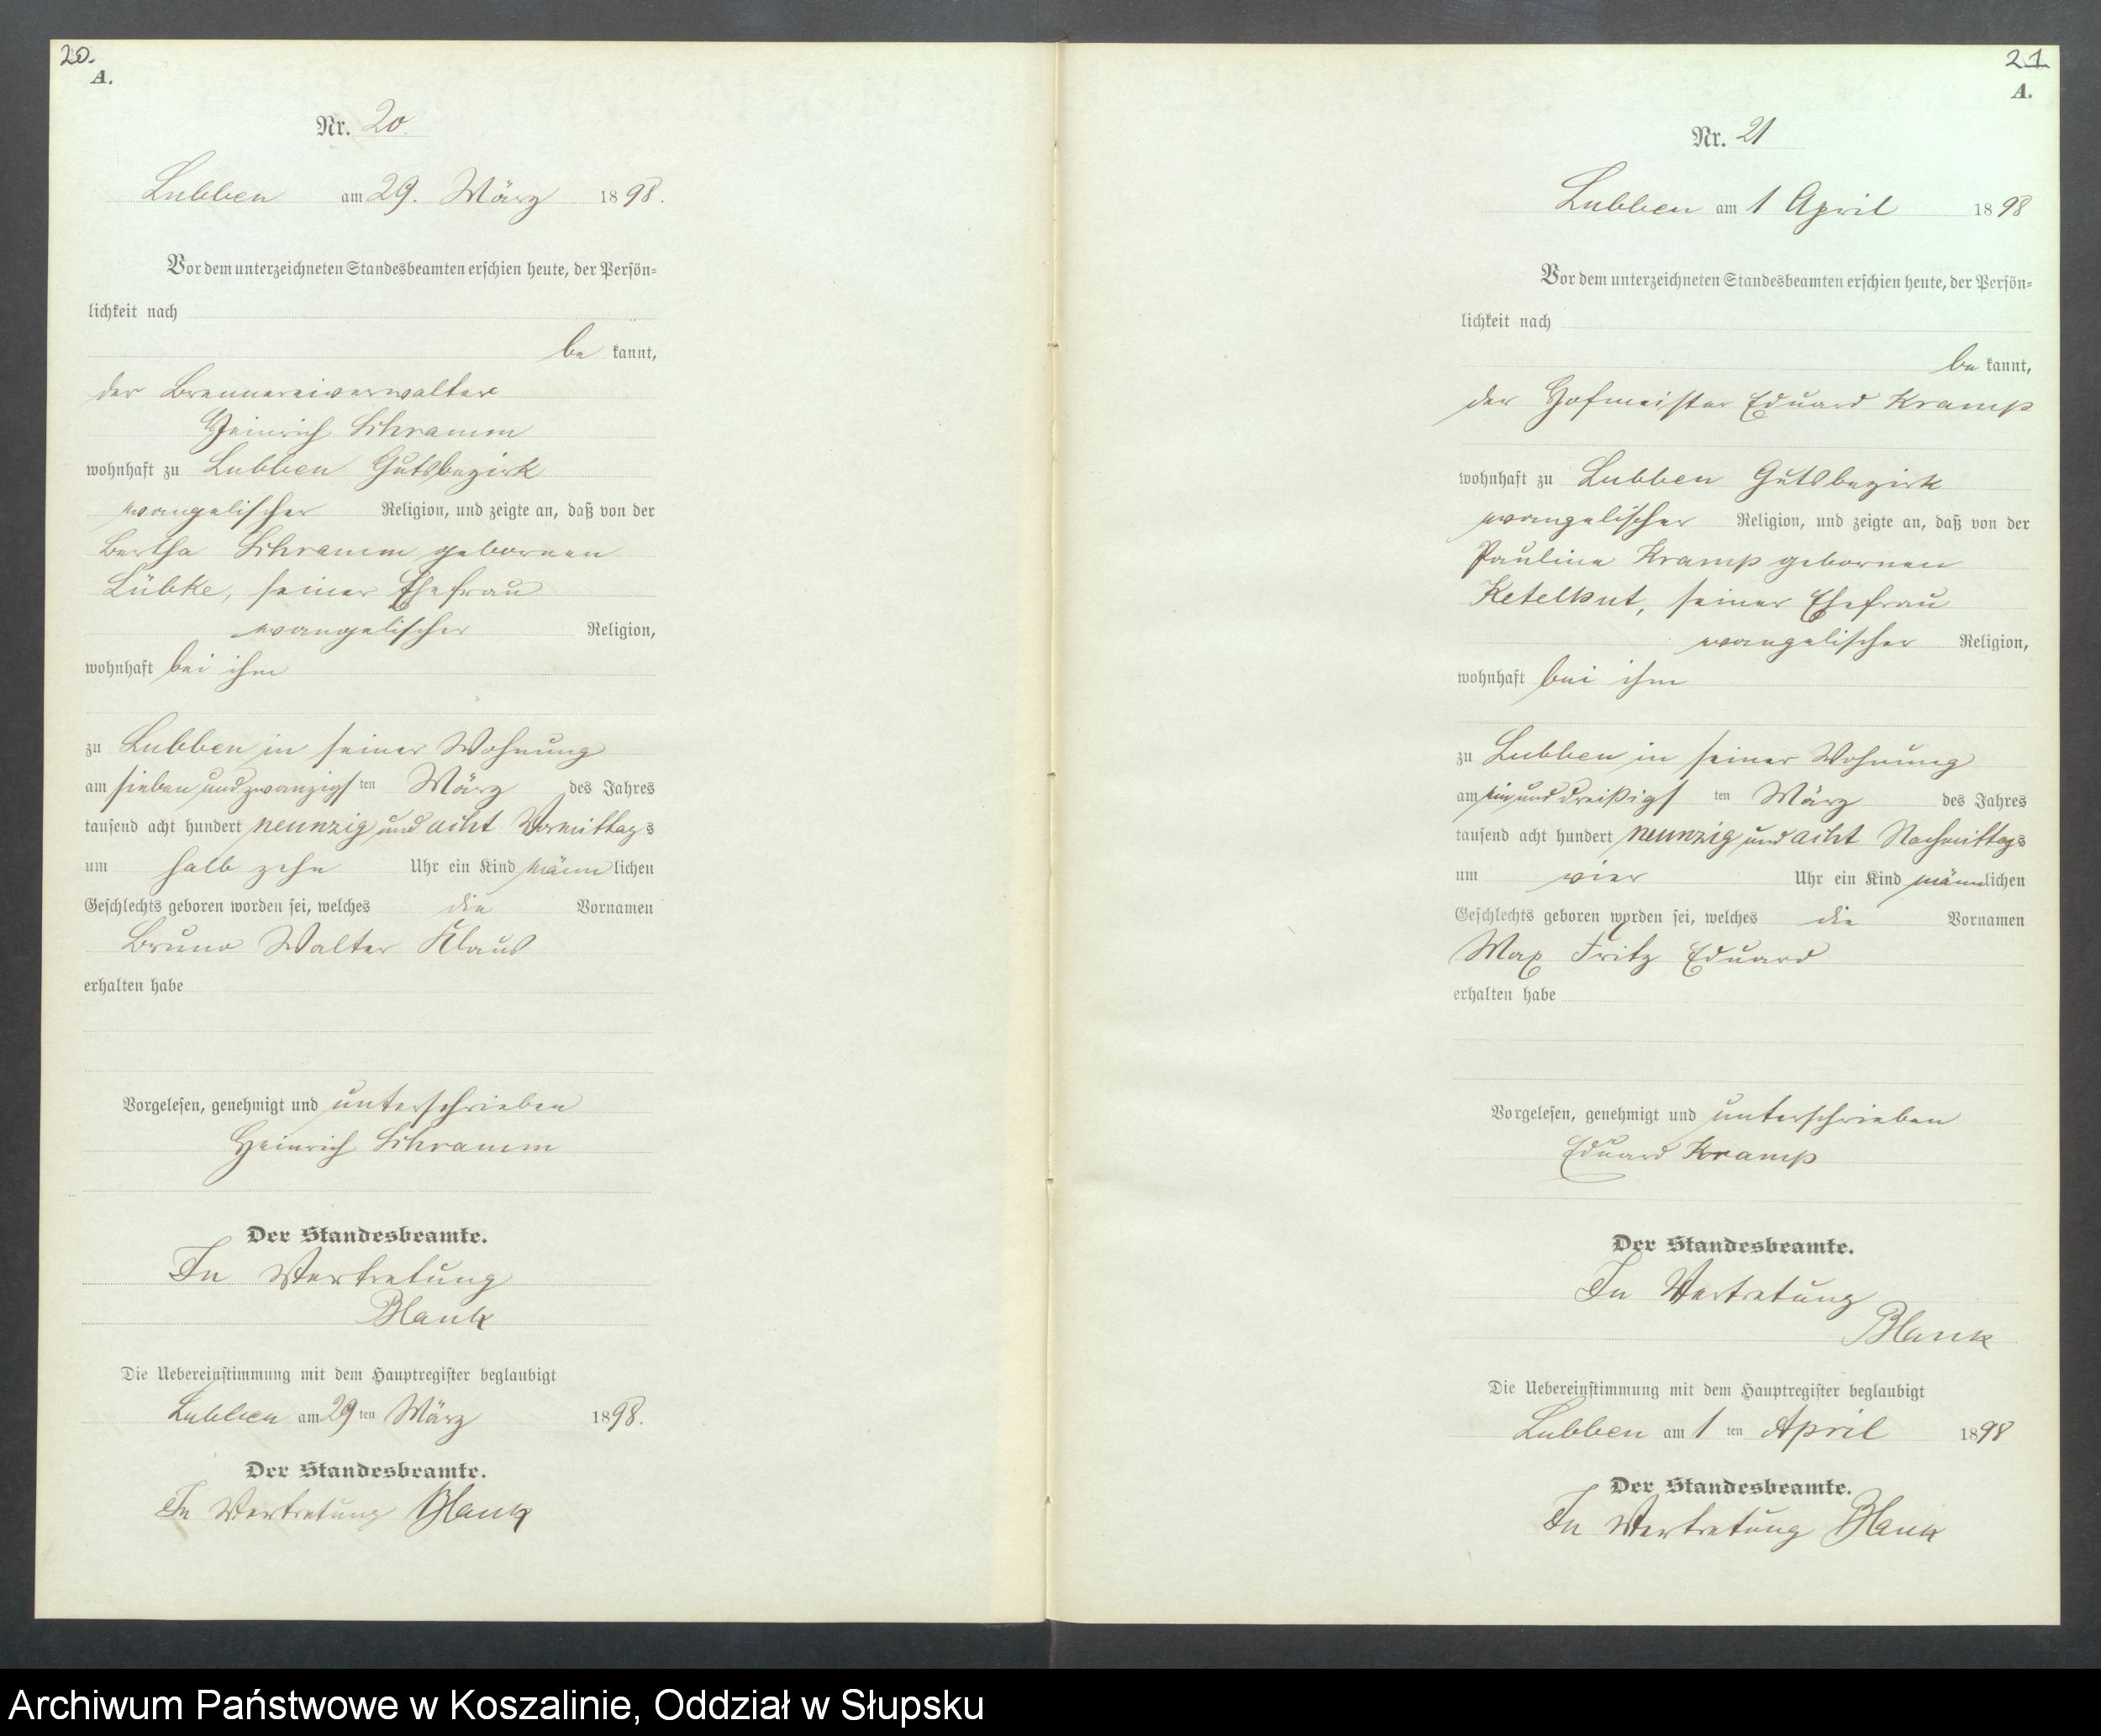 20.
A.
Nr. 20.
Lubben am 29. März 1898.
Vor dem unterzeichneten Standesbeamten erschien heute, der Persön-
lichkeit nach
be kannt,
der Brennereiverwalter
Heinrich Schramm
wohnhaft zu Lubben Gutsbezirk
evangelischer Religion, und zeigte an, daß von der
Bertha Schramm gebornen
Lübke, seiner Ehefrau
evangelischer Religion,
wohnhaft bei ihm
zu Lubben in seiner Wohnung
am sieben und zwanzigsten März des Jahres
tausend acht hundert neunzig und acht Vormittags
um halb zehn Uhr ein Kind männlichen
Geschlechts geboren worden sei, welches die Vornamen
Bruno Walter Klaus
erhalten habe
Vorgelesen, genehmigt und unterschrieben
Heinrich Schramm
Der Standesbeamte.
In Vertretung
Blank
Die Uebereinstimmung mit dem Hauptregister beglaubigt
Lubben am 29ten März 1898.
Der Standesbeamte.
In Vertretung Blank
21
A.
Nr. 21
Lubben am 1 April 1898
Vor dem unterzeichneten Standesbeamten erschien heute, der Persön-
lichkeit nach
be kannt,
der Hofmeister Eduard Kramp
wohnhaft zu Lubben Gutsbezirk
evangelischer Religion, und zeigte an, daß von der
Pauline Kramp gebornen
Ketelhut, seiner Ehefrau
evangelischer Religion,
wohnhaft bei ihm
zu Lubben in seiner Wohnung
am ein und dreißigsten März des Jahres
tausend acht hundert neunzig und acht Nachmittags
um vier Uhr ein Kind männlichen
Geschlechts geboren worden sei, welches die Vornamen
Max Fritz Eduard
erhalten habe
Vorgelesen, genehmigt und unterschrieben
Eduard Kramp
Der Standesbeamte.
In Vertretung
Blank
Die Uebereinstimmung mit dem Hauptregister beglaubigt
Lubben am 1 ten April 1898
Der Standesbeamte.
In Vertretung Blank
Archiwum Państwowe w Koszalinie, Oddział w Słupsku